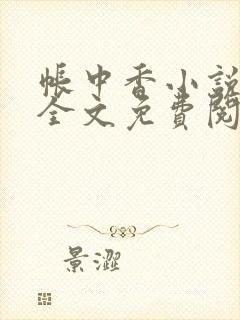 帳中香小說
全文免費閱
景澀